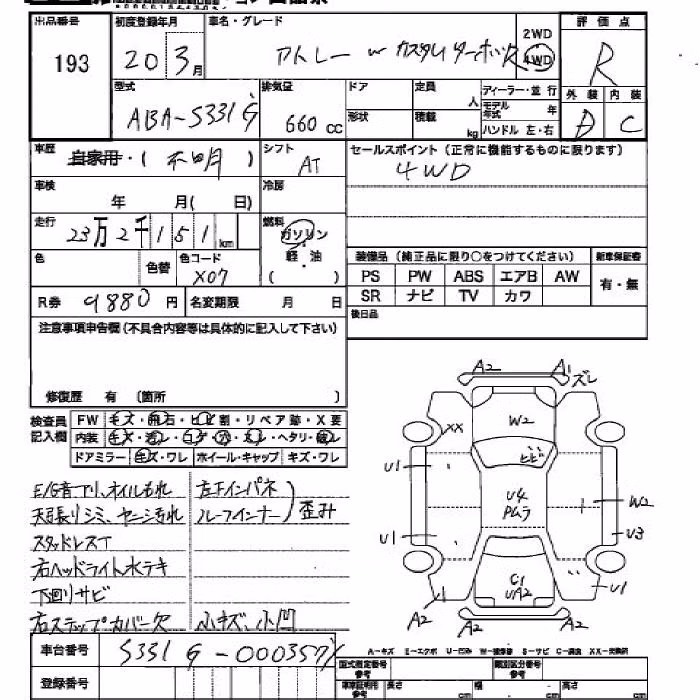 出品番号 初度登録年月 車名・グレード 評価点
193 20 3月 アトレー W カスタムターボR 2WD 4WD R
型式 排気量 ドア 定員 人 ディーラー・並行 外装 内装
ABA-S331G 660cc 形状 積載 kg モデル年式 年 D C
ハンドル 左・右
車歴 自家用・(不明) シフト AT セールスポイント(正常に機能するものに限ります)
4WD
車検 年 月( 日) 冷房
走行 23万2千151km 燃料 ガソリン
軽・油
( )
色 色替 色コード X07 装備品(純正品に限り○をつけてください) 新車保証書
PS PW ABS エアB AW 有・無
SR ナビ TV カワ
R券 9880円 名変期限 月 日 後日品
注意事項申告欄(不具合内容等は具体的に記入して下さい)
修復歴 有 (箇所 )
検査員記入欄 FW キズ・飛石・ヒビ割・リペア跡・X要
内装 キズ・汚レ・コゲ・穴・スレ・ヘタリ・破レ
ドアミラー キズ・ワレ ホイール・キャップ キズ・ワレ
E/G音アリ、オイルもれ 左Fインパネ
天張りシミ、ヤニ汚れ ルーフインナー)歪み
スタッドレスT
右ヘッドライト水テキ
下回りサビ
右ステップカバー欠 小キズ、小凹
A2 A1 ズレ
W2
XX ヒビ
U1 U4 W2
PムラU1 U3
C1
UA2
U1 U1
A2 A2
車台番号 S331G-0003577
登録番号
A-キズ E-エクボ U-凹み W-補修跡 S-サビ C-腐食 XX-交換済
型式指定番号 参考 類別区分番号 参考
車庫証明用 参考 長さ cm 幅 cm 高さ cm